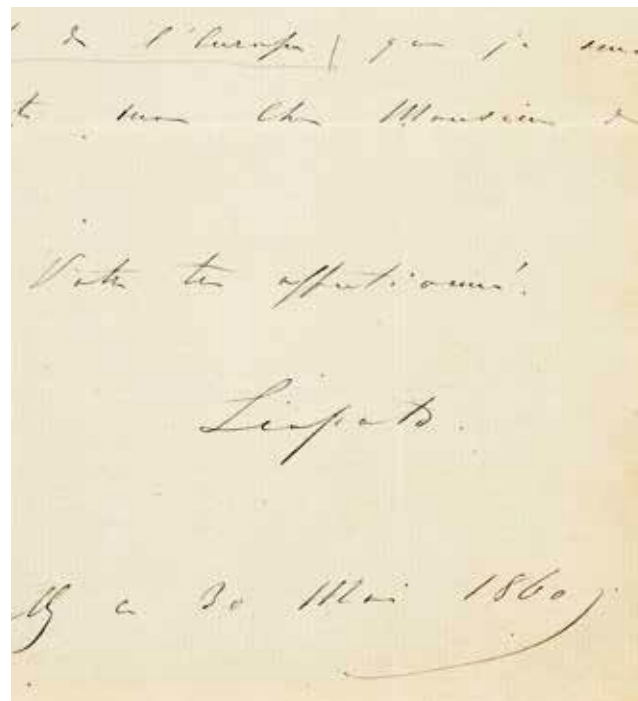 de l'Europe) que je
mon cher Monsieur
Votre très affectionné.
Léopold.
ce 30 Mai 1860